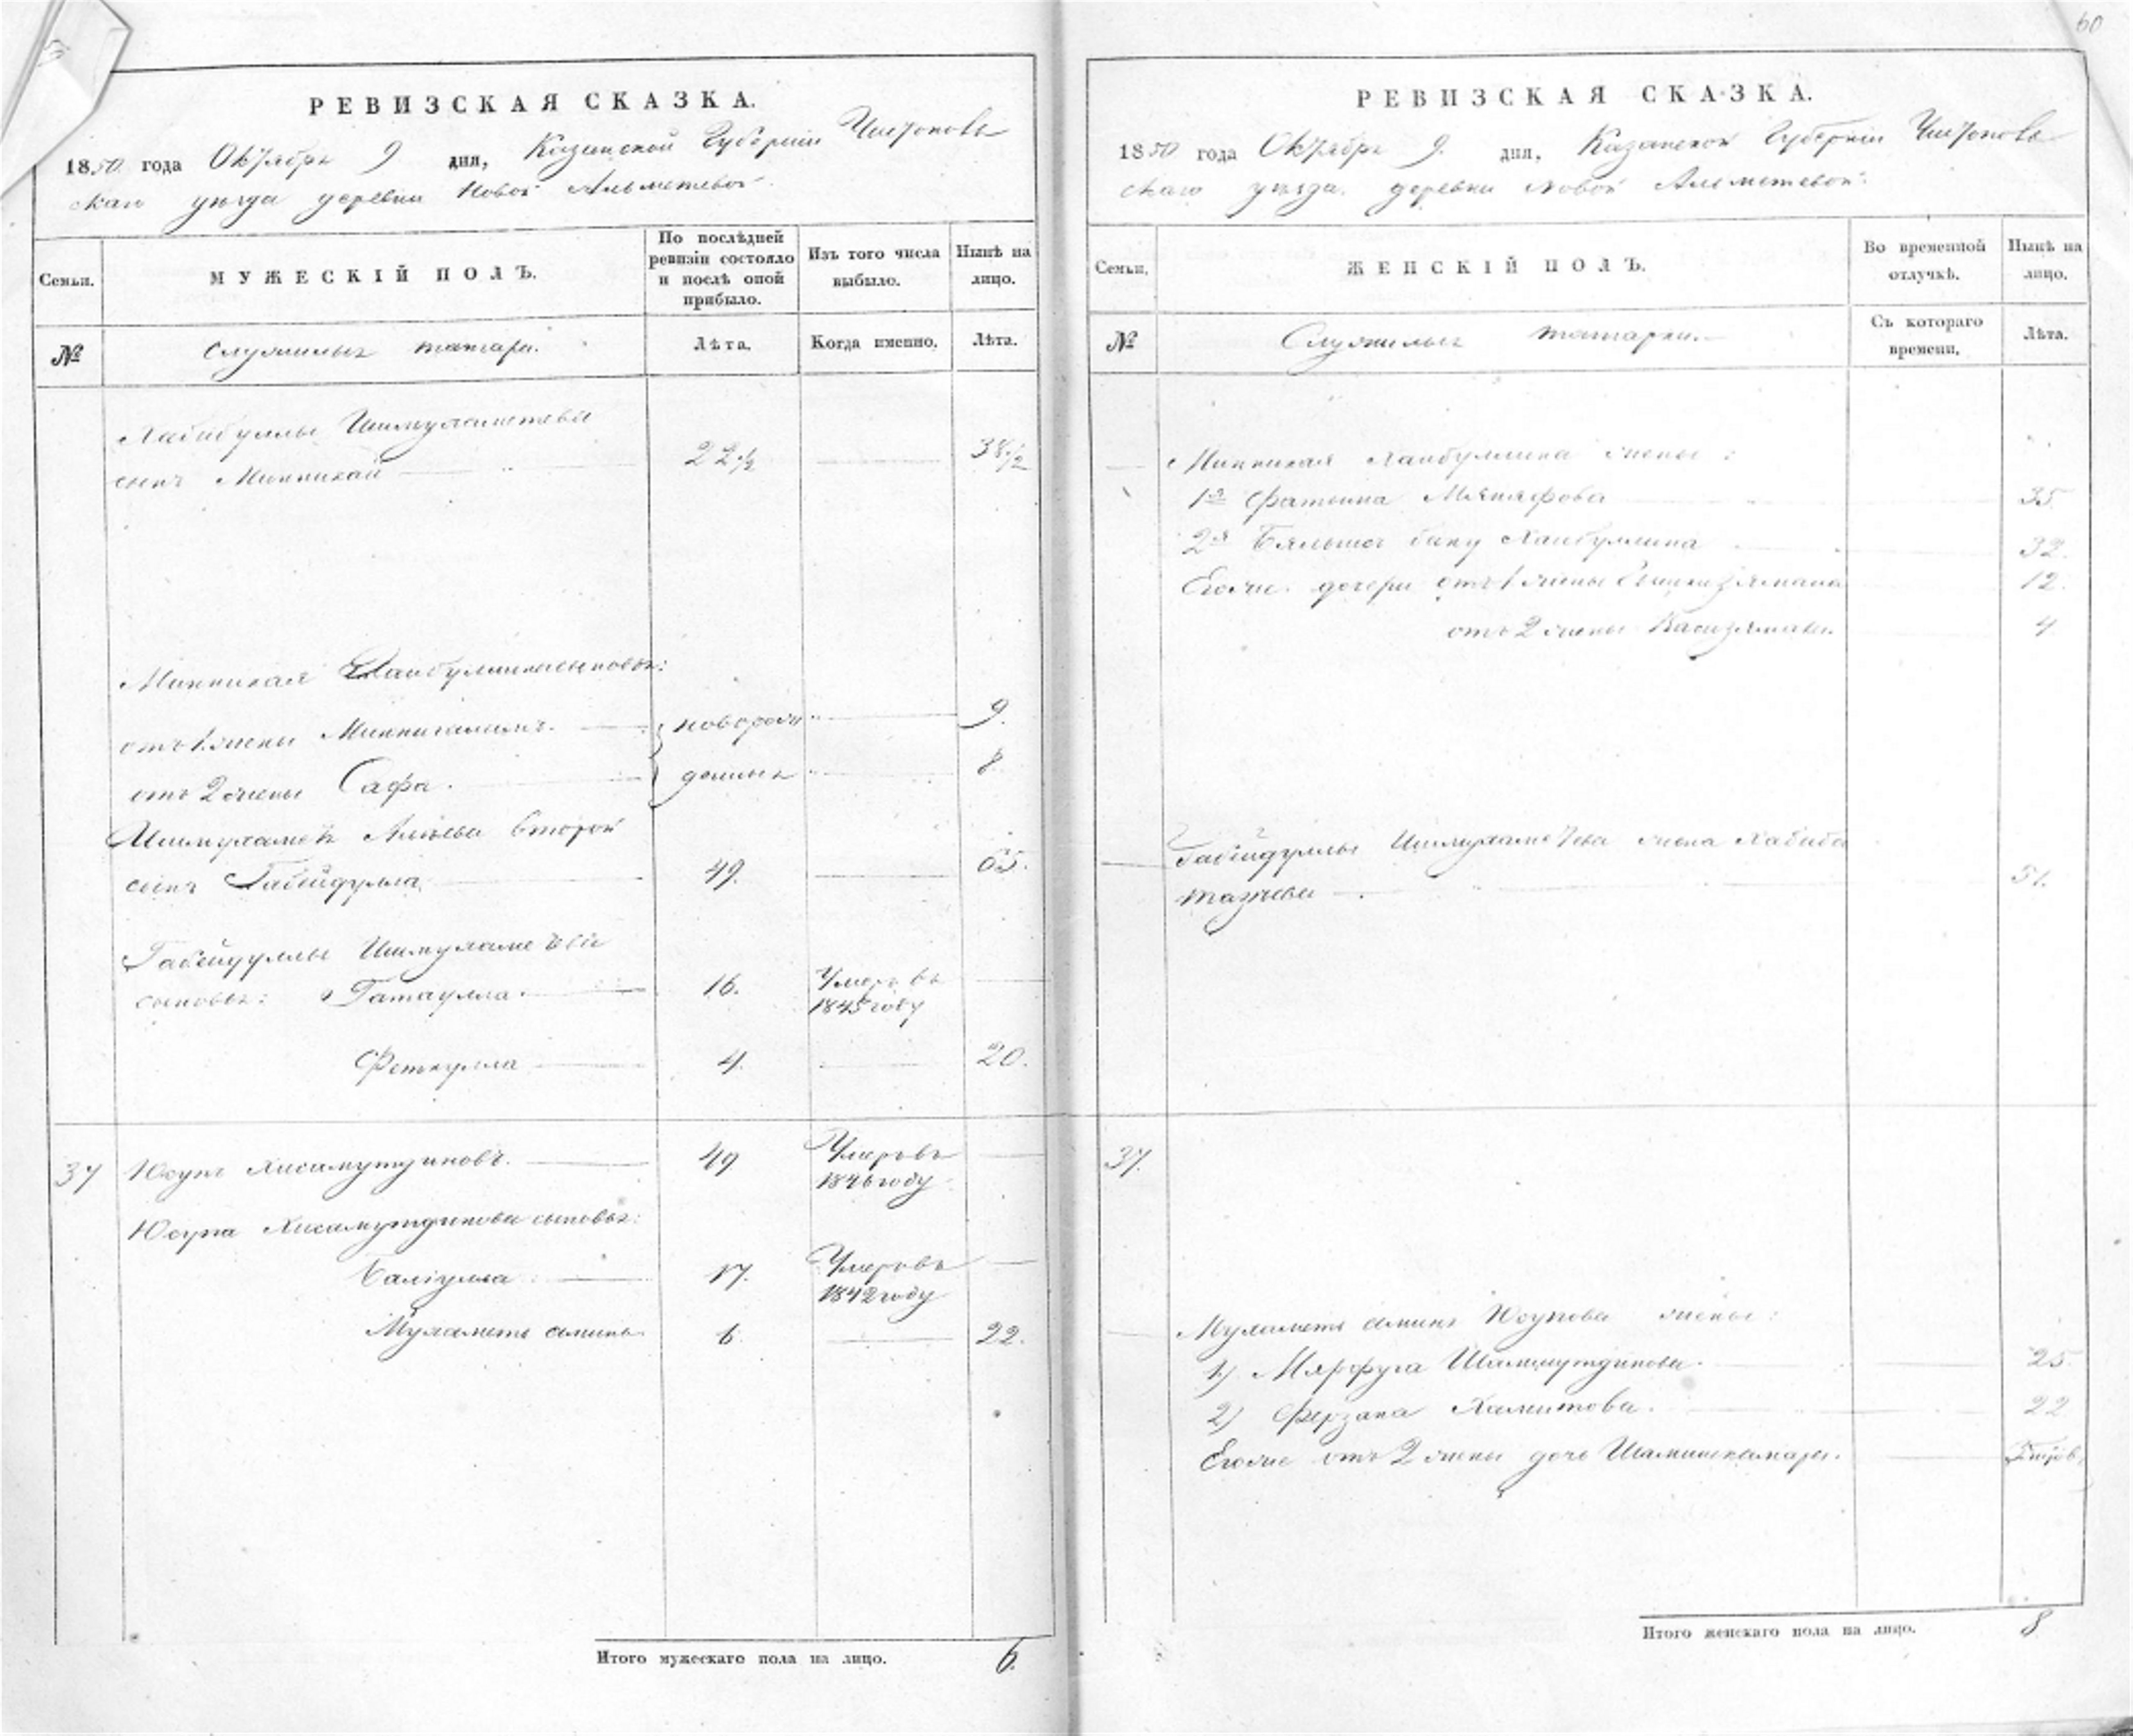 60
РЕВИЗСКАЯ СКАЗКА.
1850 года Октября 9 дня, Казанской Губернии Чистополь
скаго уѣзда деревни Новой Альметевой.
Семьи.
МУЖЕСКІЙ ПОЛЪ.
По послѣдней ревизіи состояло и послѣ оной прибыло.
Изъ того числа выбыло.
Нынѣ на лицо.
№
Служилых татаръ.
Лѣта.
Когда именно.
Лѣта.
Хабибуллы Ишмухаметева
сынъ Миннихай 22½ 38½
Миннихая сыновья:
отъ 1 жены 9.
от 2 жены Сафа. 8
новорож
денныя
Ишмухаметь второй
сынъ Габейдулла 49. 65.
Габейдуллы Ишмухаметева
сыновья: Гатаулла. 16. Умеръ въ
1845 году
Феткулла 4. 20.
37 Юсупъ Хисамутдиновъ. 49 Умеръ въ
1846 году
Юсупа Хисамутдинова сыновья:
Валіулла 17. Умеръ въ
1842 году
Мухаметь аминь 6 22.
Итого мужескаго пола на лицо. 6.
РЕВИЗСКАЯ СКАЗКА.
1850 года Октября 9. дня, Казанской Губернии Чистополь
скаго уѣзда деревни Новой Альметевой.
Семьи.
ЖЕНСКІЙ ПОЛЪ.
Во временной отлучкѣ.
Нынѣ на лицо.
№
Служилых татарки.
Съ котораго времени.
Лѣта.
Миннихая Хаибуллина жены:
1я 35
2я бану Хаибуллина 32.
Егоже дочери отъ 1 жены 12.
отъ 2 жены 4
Габейдуллы Ишмухаметева жена Хабиба
51.
37.
Мухаметь аминя Юсупова жены:
1) Мярфуга 25
2) Ферзана Хамитова. 22
Егоже отъ 2 жены дочь
Итого женскаго пола на лицо. 8